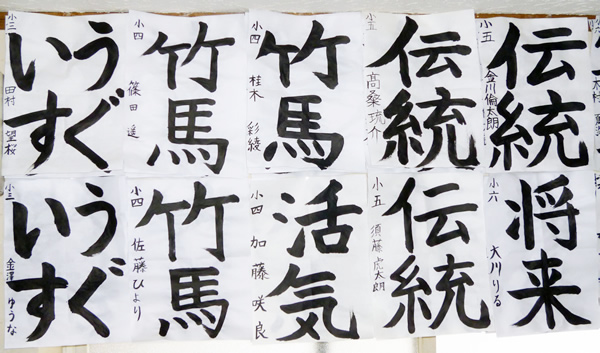 うぐ
いす
小三 田村 望桜
竹馬
小四 篠田 遥
竹馬
小四 桂木 彩綾
伝統
小五 高桑琉介
伝統
小五 金川倫太朗
うぐ
いす
小三 金澤 ゆうな
竹馬
小四 佐藤ひより
活気
小四 加藤咲良
伝統
小五 須藤虎太朗
将来
小六 大川りる